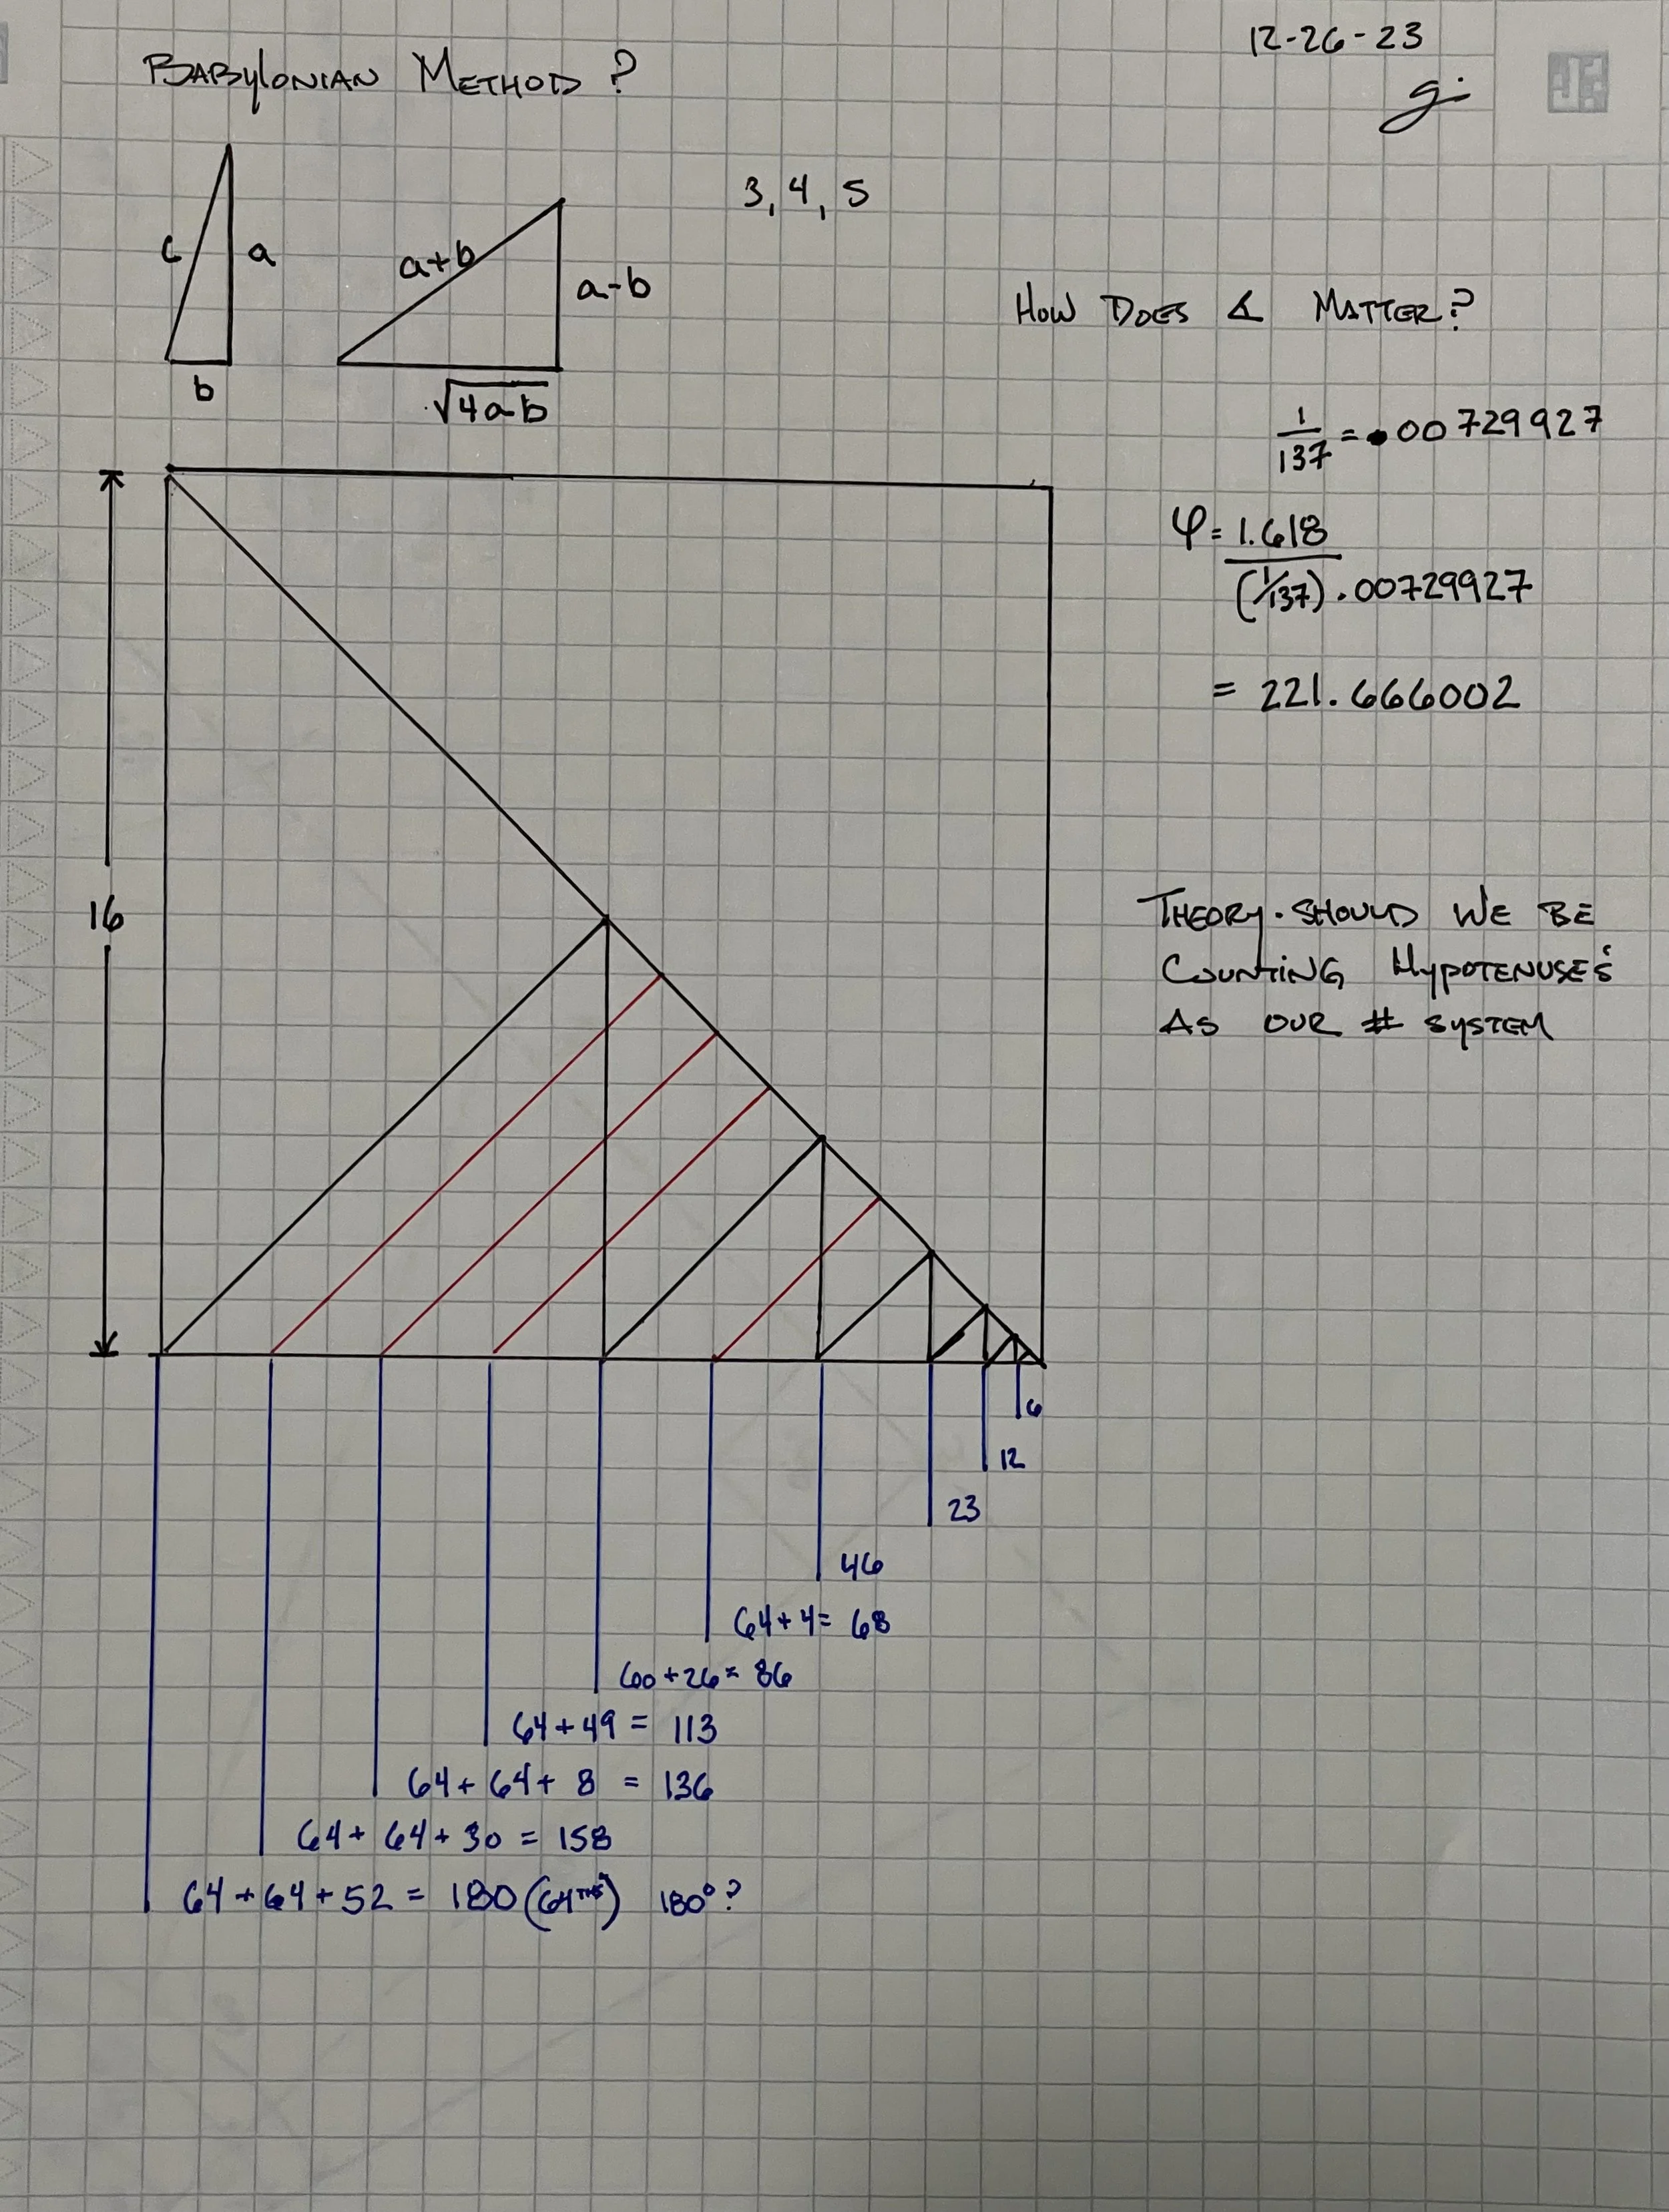 12-26-23
BABYLONIAN METHOD ?
3, 4, 5
c
a
b
a+b
a-b
√4ab
HOW DOES ∡ MATTER?
1/137 = .00729927
φ = 1.618 / (1/137) .00729927
= 221.666002
16
THEORY. SHOULD WE BE
COUNTING HYPOTENUSE'S
AS OUR # SYSTEM
6
12
23
46
64+4= 68
60+26= 86
64+49 = 113
64+64+ 8 = 136
64+ 64+30 = 158
64+64+52 = 180 (64THS) 180°?